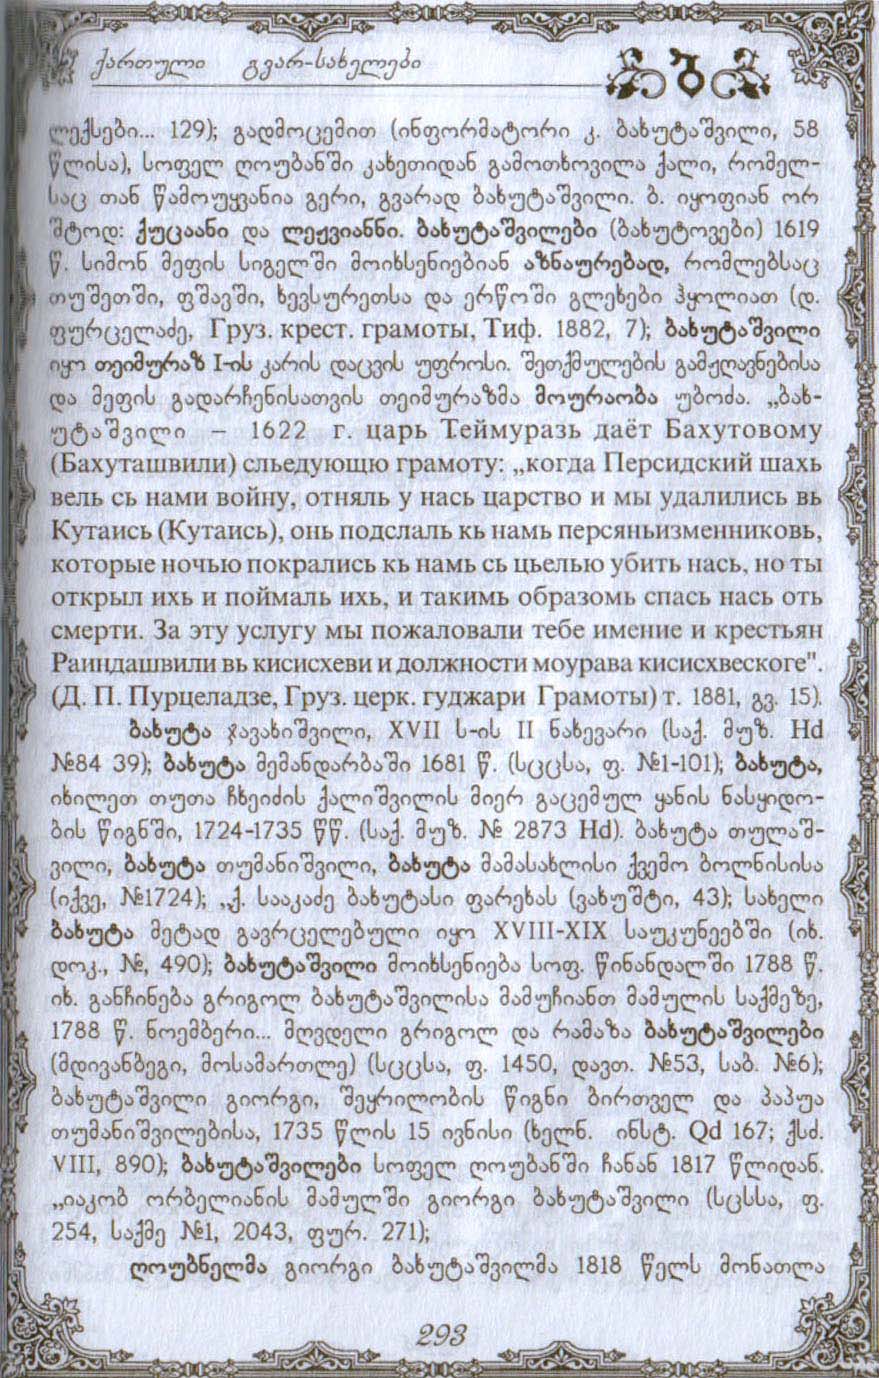 ქართული გვარ-სახელები
ლექსები... 129); გადმოცემით (ინფორმატორი კ. ბახუტაშვილი, 58
წლისა), სოფელ ღოუბანში კახეთიდან გამოთხოვილა ქალი, რომელ-
საც თან წამოუყვანია გერი, გვარად ბახუტაშვილი. ბ. იყოფიან ორ
შტოდ: ქუცაანი და ლეჟვიანნი. ბახუტაშვილები (ბახუტოვები) 1619
წ. სიმონ მეფის სიგელში მოიხსენიებიან აზნაურებად, რომლებსაც
თუშეთში, ფშავში, ხევსურეთსა და ერწოში გლეხები ჰყოლიათ (დ.
ფურცელაძე, Груз. крест. грамоты, Тиф. 1882, 7); ბახუტაშვილი
იყო თეიმურაზ I-ის კარის დაცვის უფროსი. შეთქმულების გამჟღავნებისა
და მეფის გადარჩენისათვის თეიმურაზმა მოურაობა უბოძა. „ბახ-
უტაშვილი – 1622 г. царь Теймуразь даёт Бахутовому
(Бахуташвили) сльедующю грамоту: „когда Персидский шахь
вель сь нами войну, отняль у нась царство и мы удалились вь
Кутаись (Кутаись), онь подслаль кь намь персяньизменниковь,
которые ночью покрались кь намь сь цьелью убить нась, но ты
открыл ихь и поймаль ихь, и такимь образомь спась нась оть
смерти. За эту услугу мы пожаловали тебе имение и крестьян
Раиндашвили вь кисисхеви и должности моурава кисисхвескоге".
(Д. П. Пурцеладзе, Груз. церк. гуджари Грамоты) т. 1881, გვ. 15).
ბახუტა ჯავახიშვილი, XVII ს-ის II ნახევარი (საქ. მუზ. Hd
№84 39); ბახუტა მემანდარბაში 1681 წ. (სცცსა, ფ. №1-101); ბახუტა,
იხილეთ თუთა ჩხეიძის ქალიშვილის მიერ გაცემულ ყანის ნასყიდო-
ბის წიგნში, 1724-1735 წწ. (საქ. მუზ. № 2873 Hd). ბახუტა თულაშ-
ვილი, ბახუტა თუმანიშვილი, ბახუტა მამასახლისი ქვემო ბოლნისისა
(იქვე, №1724); „ქ. სააკაძე ბახუტასი ფარეხას (ვახუშტი, 43); სახელი
ბახუტა მეტად გავრცელებული იყო XVIII-XIX საუკუნეებში (იხ.
დოკ., №, 490); ბახუტაშვილი მოიხსენიება სოფ. წინანდალში 1788 წ.
იხ. განჩინება გრიგოლ ბახუტაშვილისა მამუჩიანთ მამულის საქმეზე,
1788 წ. ნოემბერი... მღვდელი გრიგოლ და რამაზა ბახუტაშვილები
(მდივანბეგი, მოსამართლე) (სცცსა, ფ. 1450, დავთ. №53, საბ. №6);
ბახუტაშვილი გიორგი, შეყრილობის წიგნი ბირთველ და პაპუა
თუმანიშვილებისა, 1735 წლის 15 ივნისი (ხელნ. ინსტ. Qd 167; ქსძ.
VIII, 890); ბახუტაშვილები სოფელ ღოუბანში ჩანან 1817 წლიდან.
„იაკობ ორბელიანის მამულში გიორგი ბახუტაშვილი (სცსსა, ფ.
254, საქმე №1, 2043, ფურ. 271);
ღოუბნელმა გიორგი ბახუტაშვილმა 1818 წელს მონათლა
293